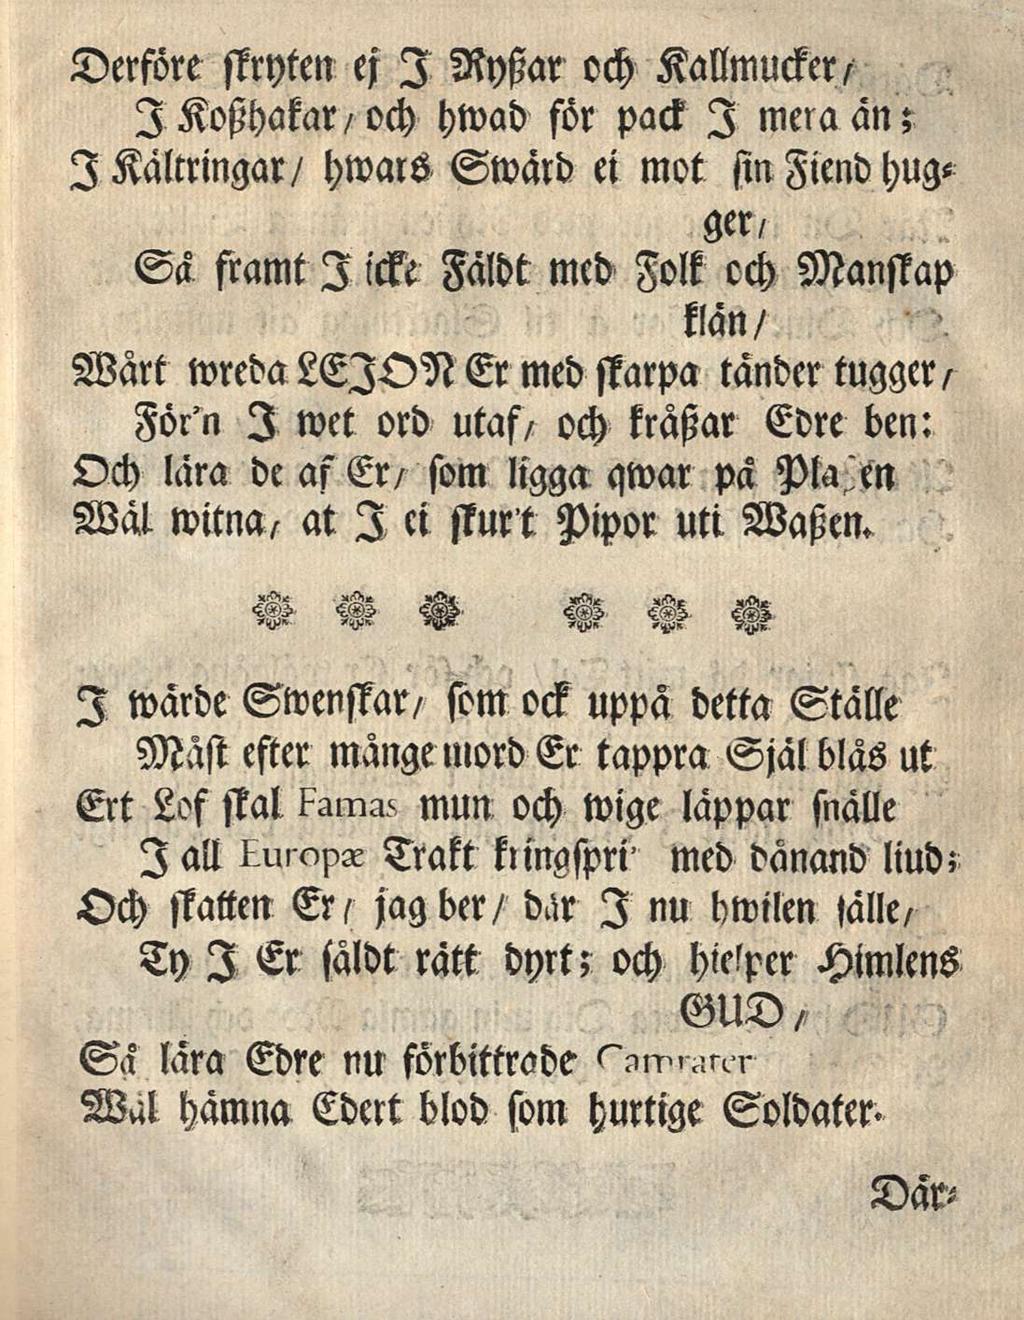 Derföre skryten ej I Ryßar och Kallmucker /
I Koßhakar / och hwad för pack I mera än ;
I Kältringar / hwars Swärd ei mot sin Fiend hug-
ger /
Så framt I icke Fäldt med Folk och Manskap
klän /
Wårt wreda LEJON Er med skarpa tänder tugger /
För'n I wet ord utaf / och kråßar Edre ben:
Och lära de af Er / som ligga qwar på
Wäl witna / at I ei skur't Pipor uti Waßen.
I wärde Swenskar / som ock uppå detta Ställe
Måst efter månge mord Er tappra Själ blås ut
Ert Lof skal Famas mun och wige läppar snälle
I all Europæ Trakt med dånand liud;
Och skatten Er / jag ber / där I nu hwilen sälle /
Ty I Er såldt rätt dyrt ; och hielper Himlens
GUD /
Så lära Edre nu förbittrade Camrater
Wäl hämna Edert blod som hurtige Soldater.
Där-